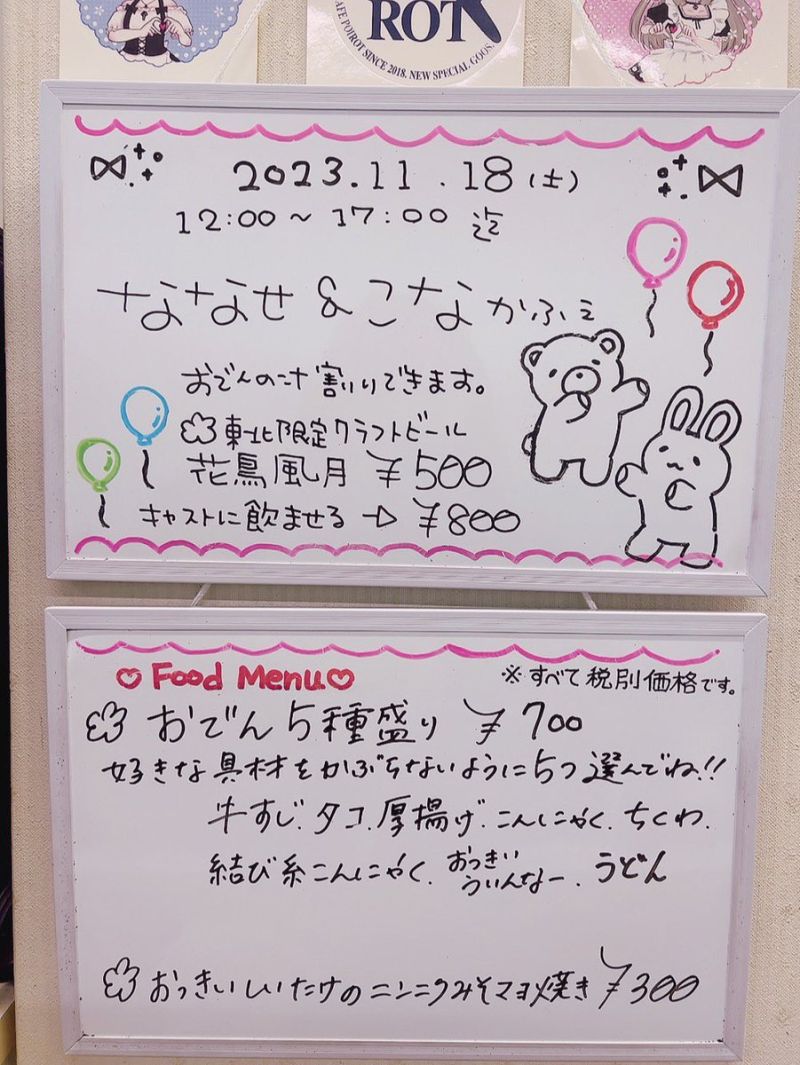 ROT
CAFE POIROT SINCE 2018. NEW SPECIAL GOODS.
2023.11.18(土)
12:00~17:00迄
ななせ&こなかふぇ
おでんの汁割りできます。
東北限定クラフトビール
花鳥風月 ¥500
キャストに飲ませる→¥800
♡Food Menu♡
※すべて税別価格です。
おでん5種盛り ¥700
好きな具材をかぶらないように5つ選んでね!!
牛すじ.タコ.厚揚げ.こんにゃく.ちくわ.
結び糸こんにゃく.おっきいういんなー.うどん
おっきいしいたけのニンニクみそマヨ焼き ¥300